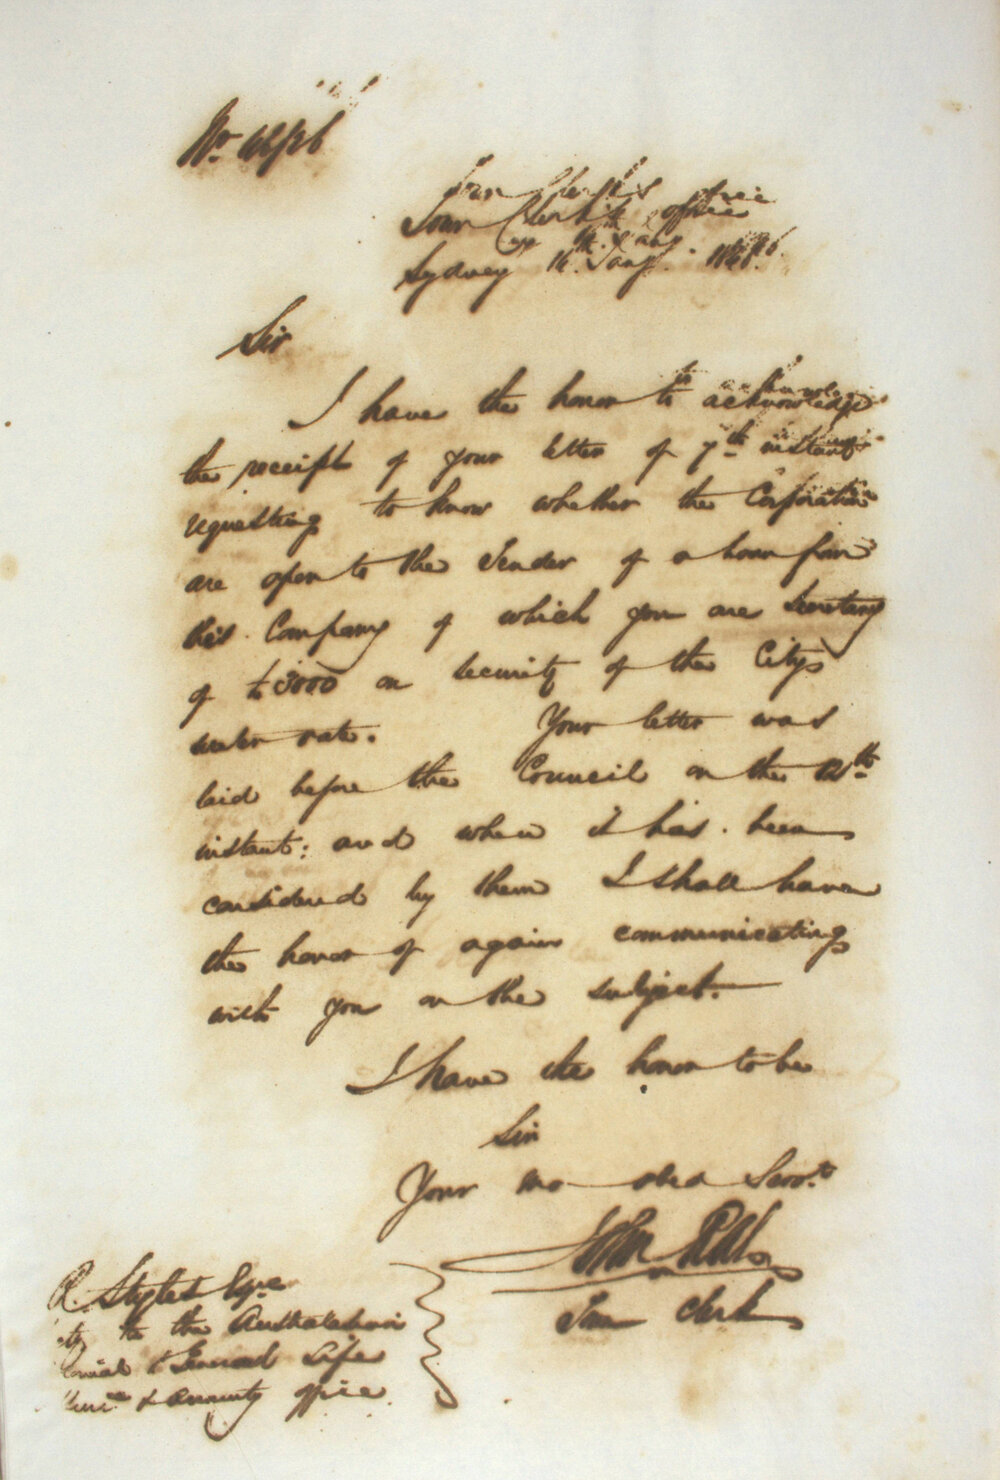 No. 42/26
Town Clerk's office
Sydney 14th Jany. 1846.
Sir
I have the honor to acknowledge
the receipt of your letter of 7th instant
requesting to know whether the Corporation
are open to the Tender of a loan from
the Company of which you are Secretary
of £3000 on security of the City's
water rate. Your letter was
laid before the Council on the 12th
instant: and when it has been
considered by them I shall have
the honor of again communicating
with you on the subject.
I have the honor to be
Sir
Your mo obed Servt.
John
Town Clerk
R. Styles Esqre
to the Australasian
& General Life
& Annuity office